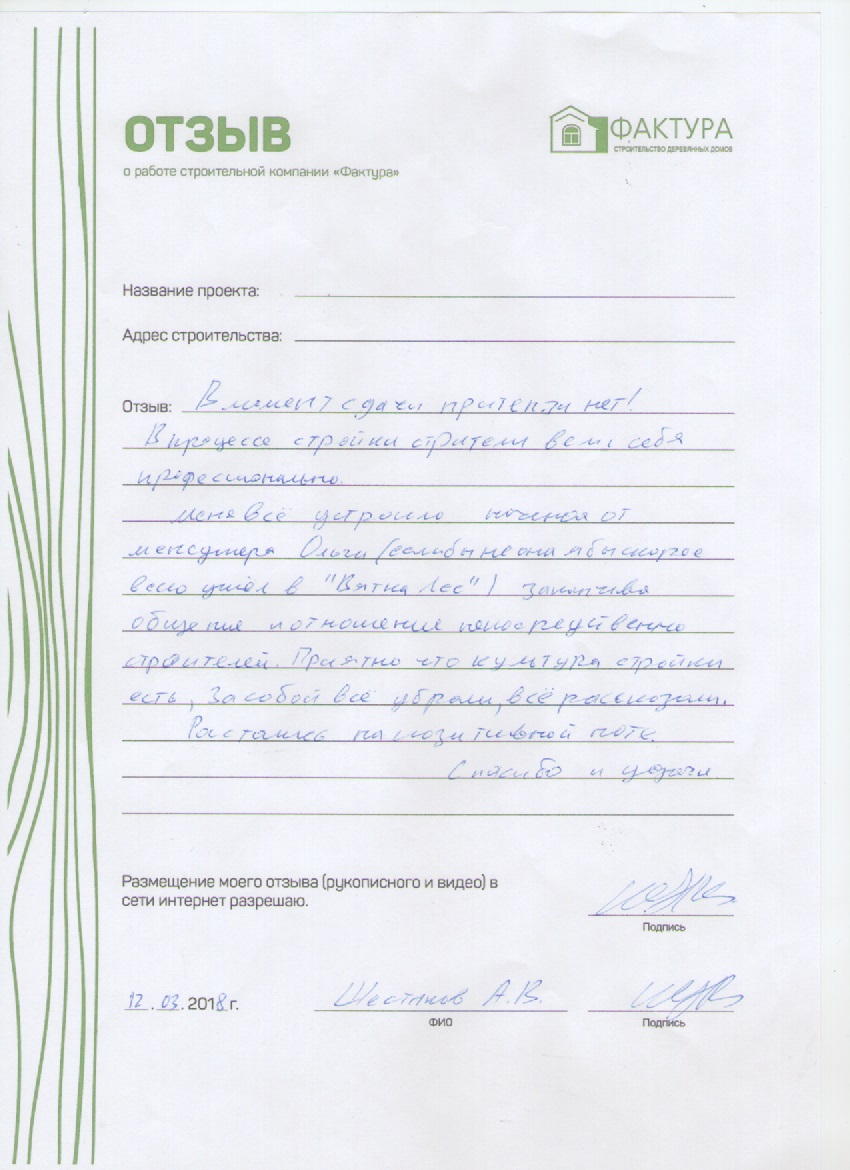 ОТЗЫВ
о работе строительной компании «Фактура»
ФАКТУРА
СТРОИТЕЛЬСТВО ДЕРЕВЯННЫХ ДОМОВ
Название проекта:
Адрес строительства:
Отзыв: В момент сдачи притензи нет!
В процессе стройки стрители вели себя
професионально.
меня всё устроило начиная от
менеджера Ольги (если бы не она я бы скорое
всего ушёл в "Вятка Лес") заканчивая
общение и отношение непосредственно
строителей. Приятно что культура стройки
есть, За собой всё убрали, всё рассказали.
Растались на позитивной ноте.
Спасибо и удачи
Размещение моего отзыва (рукописного и видео) в
сети интернет разрешаю.
Подпись
12.03.2018 г.
Шестаков А.В.
ФИО
Подпись